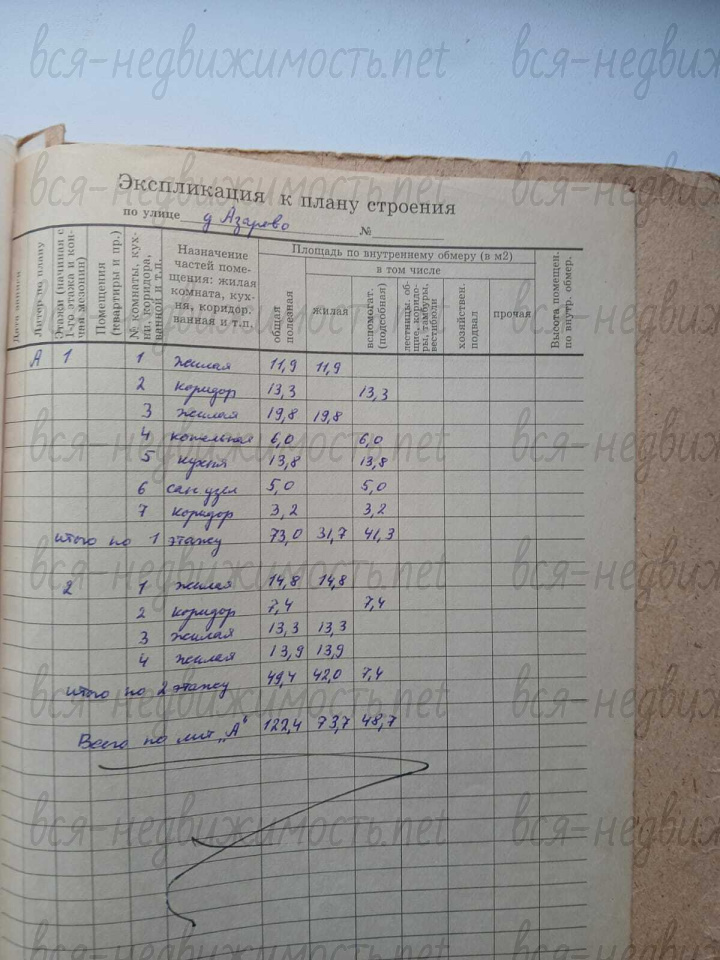 вся-недвижимость.net вся-недвиж
Экспликация к плану строения
по улице д Азарово №
Дата записи
Литер по плану
Этажи (начиная с 1-го этажа и кончая мезонин)
Помещения (квартиры и пр.)
№ комнаты, кухни, коридора, ванной и т.п.
Назначение частей помещения: жилая комната, кухня, коридор. ванная и т.п.
Площадь по внутреннему обмеру (в м2)
в том числе
общая полезная
жилая
вспомогат. (подсобная)
лестницы, общие, коридоры, тамбуры, вестибюли
хозяйствен. подвал
прочая
Высота помещен. по внутр. обмер.
А 1 1 жилая 11,9 11,9
2 коридор 13,3 13,3
3 жилая 19,8 19,8
4 котельная 6,0 6,0
5 кухня 13,8 13,8
6 сан узел 5,0 5,0
7 коридор 3,2 3,2
итого по 1 этажу 73,0 31,7 41,3
2 1 жилая 14,8 14,8
2 коридор 7,4 7,4
3 жилая 13,3 13,3
4 жилая 13,9 13,9
итого по 2 этажу 49,4 42,0 7,4
Всего по лит „А" 122,4 73,7 48,7